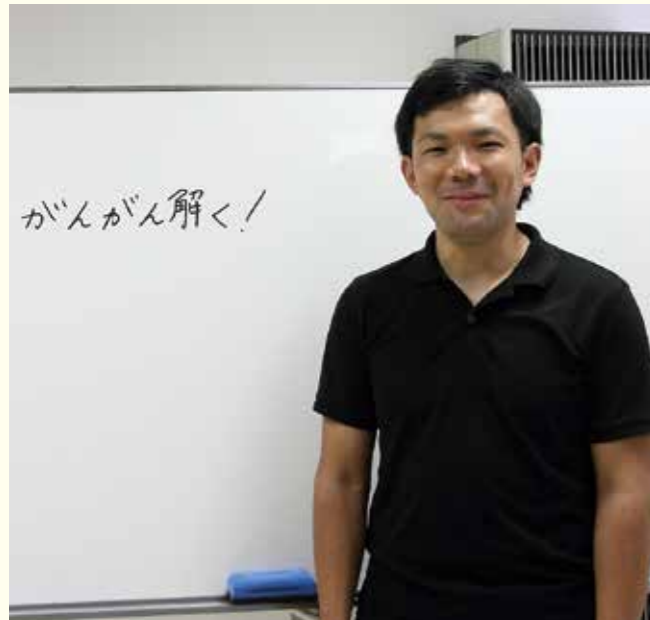 がんがん解く!